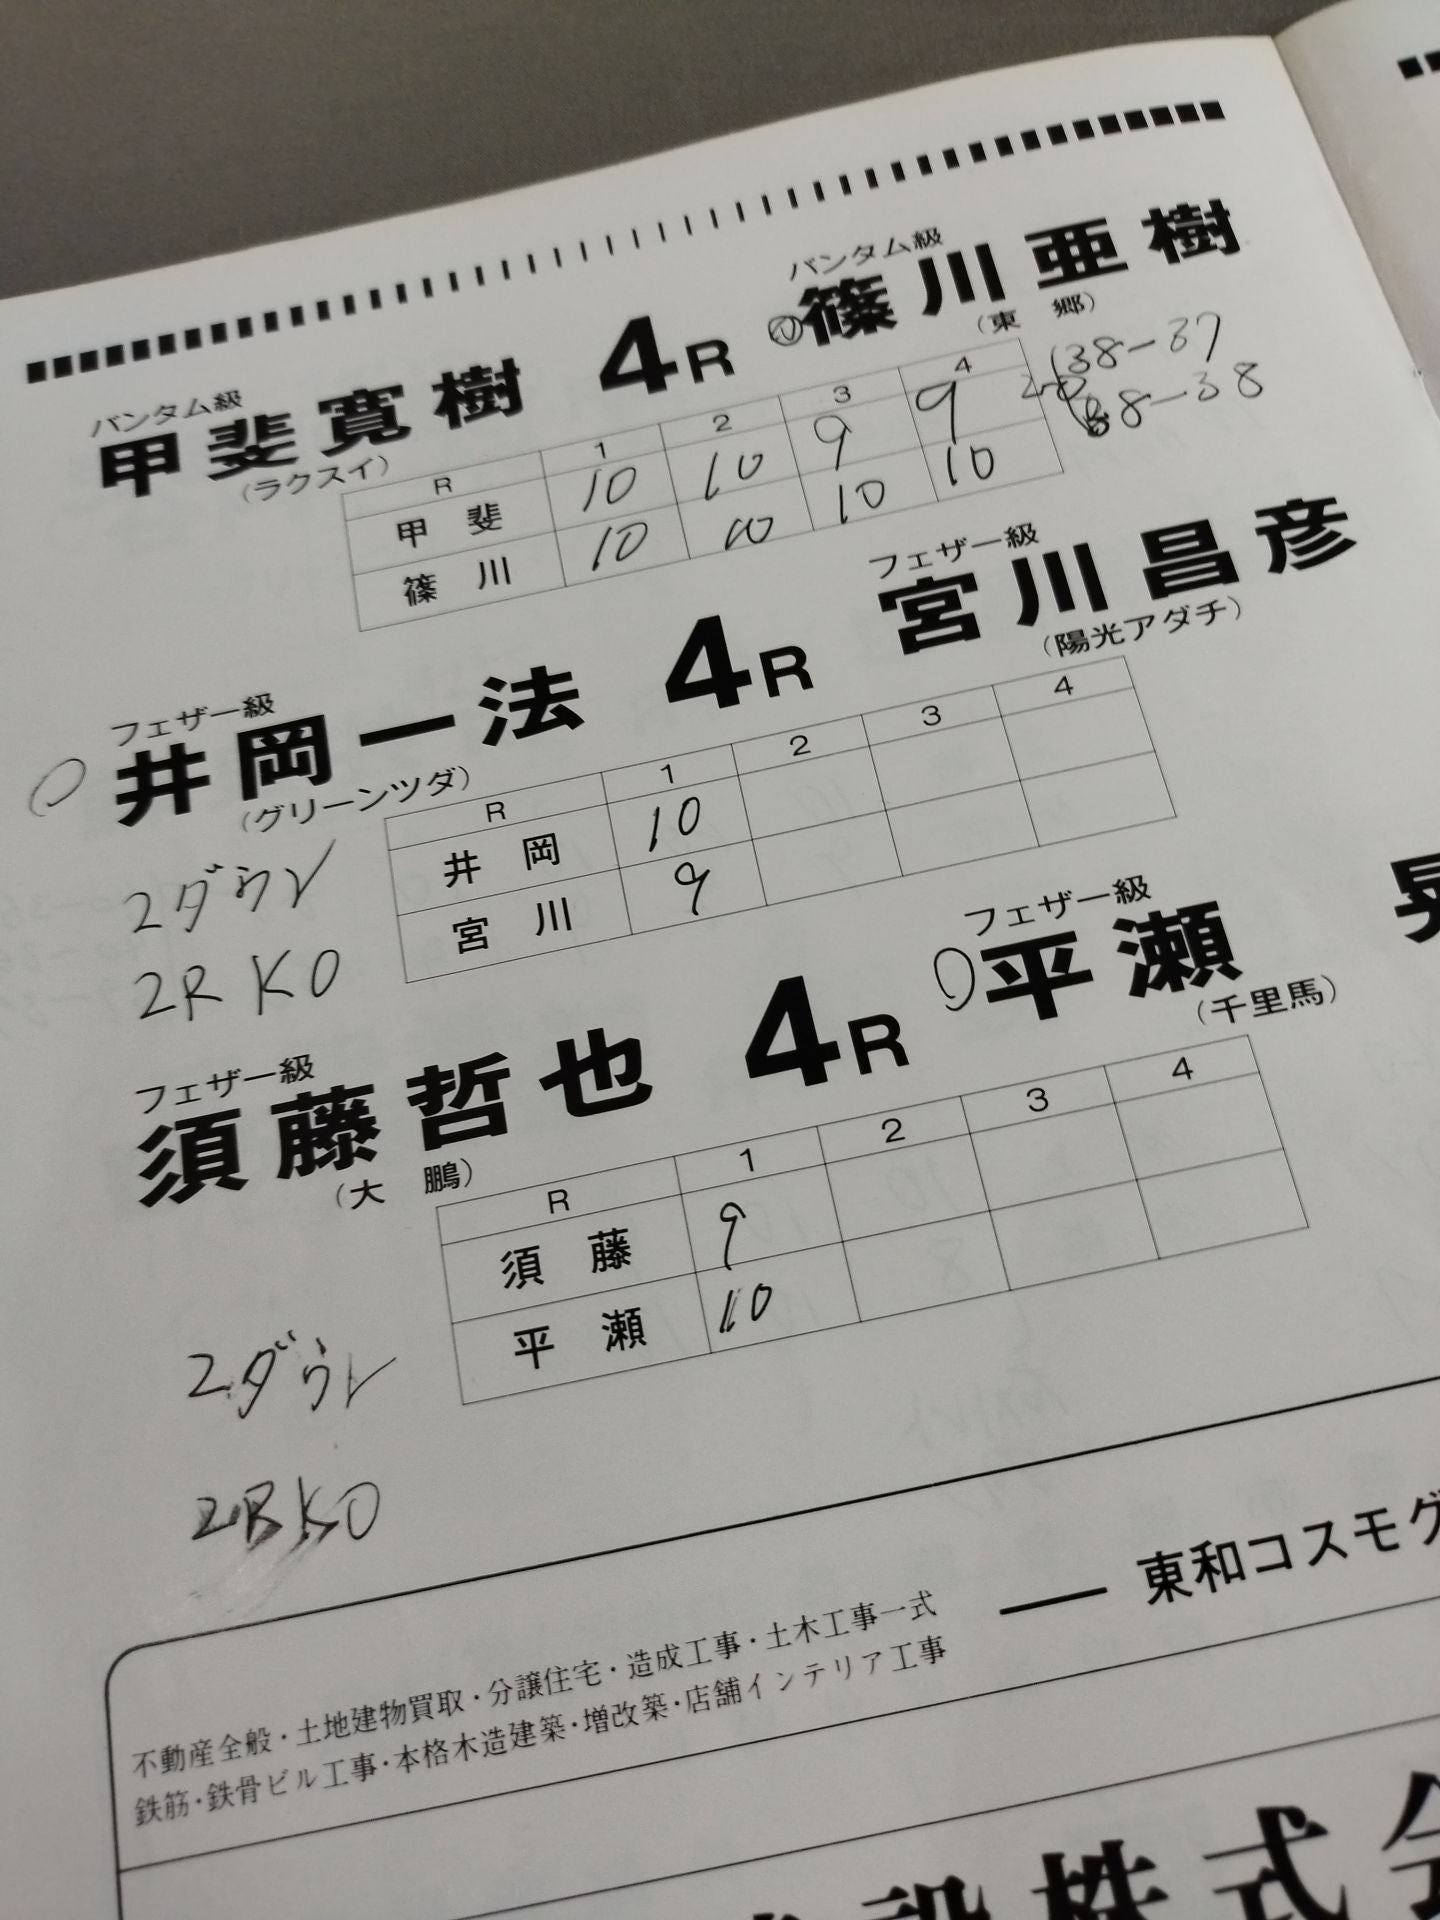 バンタム級
甲斐寛樹
(ラクスイ)
4R
バンタム級
篠川亜樹
(東 郷)
R 1 2 3 4
甲 斐 10 10 9 9
篠 川 10 10 10 10
38-37
38-38
フェザー級
井岡一法
(グリーンツダ)
4R
フェザー級
宮川昌彦
(陽光アダチ)
R 1 2 3 4
井 岡 10
宮 川 9
2ダウン
2R KO
フェザー級
須藤哲也
(大 鵬)
4R
フェザー級
平瀬
(千里馬)
R 1 2 3 4
須 藤 9
平 瀬 10
2ダウン
2R KO
東和コスモグ
不動産全般・土地建物買取・分譲住宅・造成工事・土木工事一式
鉄筋・鉄骨ビル工事・本格木造建築・増改築・店舗インテリア工事
設株式会